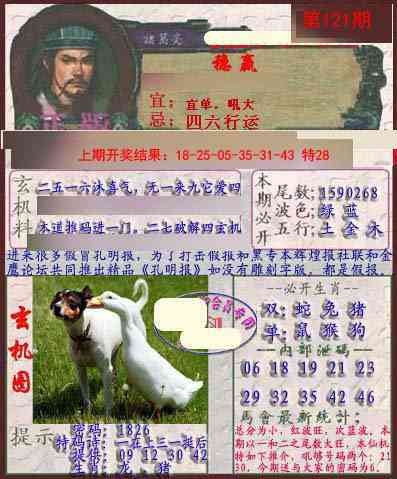 第121期
诸葛亮
稳赢
宜:宜单。吼大
忌:四六行运
上期开奖结果:18-25-05-35-31-43 特28
玄机料
二五一六沐喜气,无一来九它爱四
木道推码进一门,二七破解四玄机
本期必开
尾数;1590268
波色;绿 蓝
五行;土 金 木
进来很多假冒孔明报,为了打击假报和黑专本辉煌报社联和金
鹰论坛共同推出精品《孔明报》如没有雕刻字版,都是假报。
玄机图
--必开生肖--
双:蛇 兔 猪
单:鼠 猴 狗
--内部泄码--
06 18 19 21 23
29 32 35 42 46
馬會最新統計:
总分为小,红波旺,次蓝波。本
期以一和二之尾数大旺,本仙机
特如下推介,吼够号码两个:21
30,今期送与大家的密码为6.
提示
密码:1826
特码诗:一在上三一挺后
提供:09 12 30 42
生肖:龙、猪